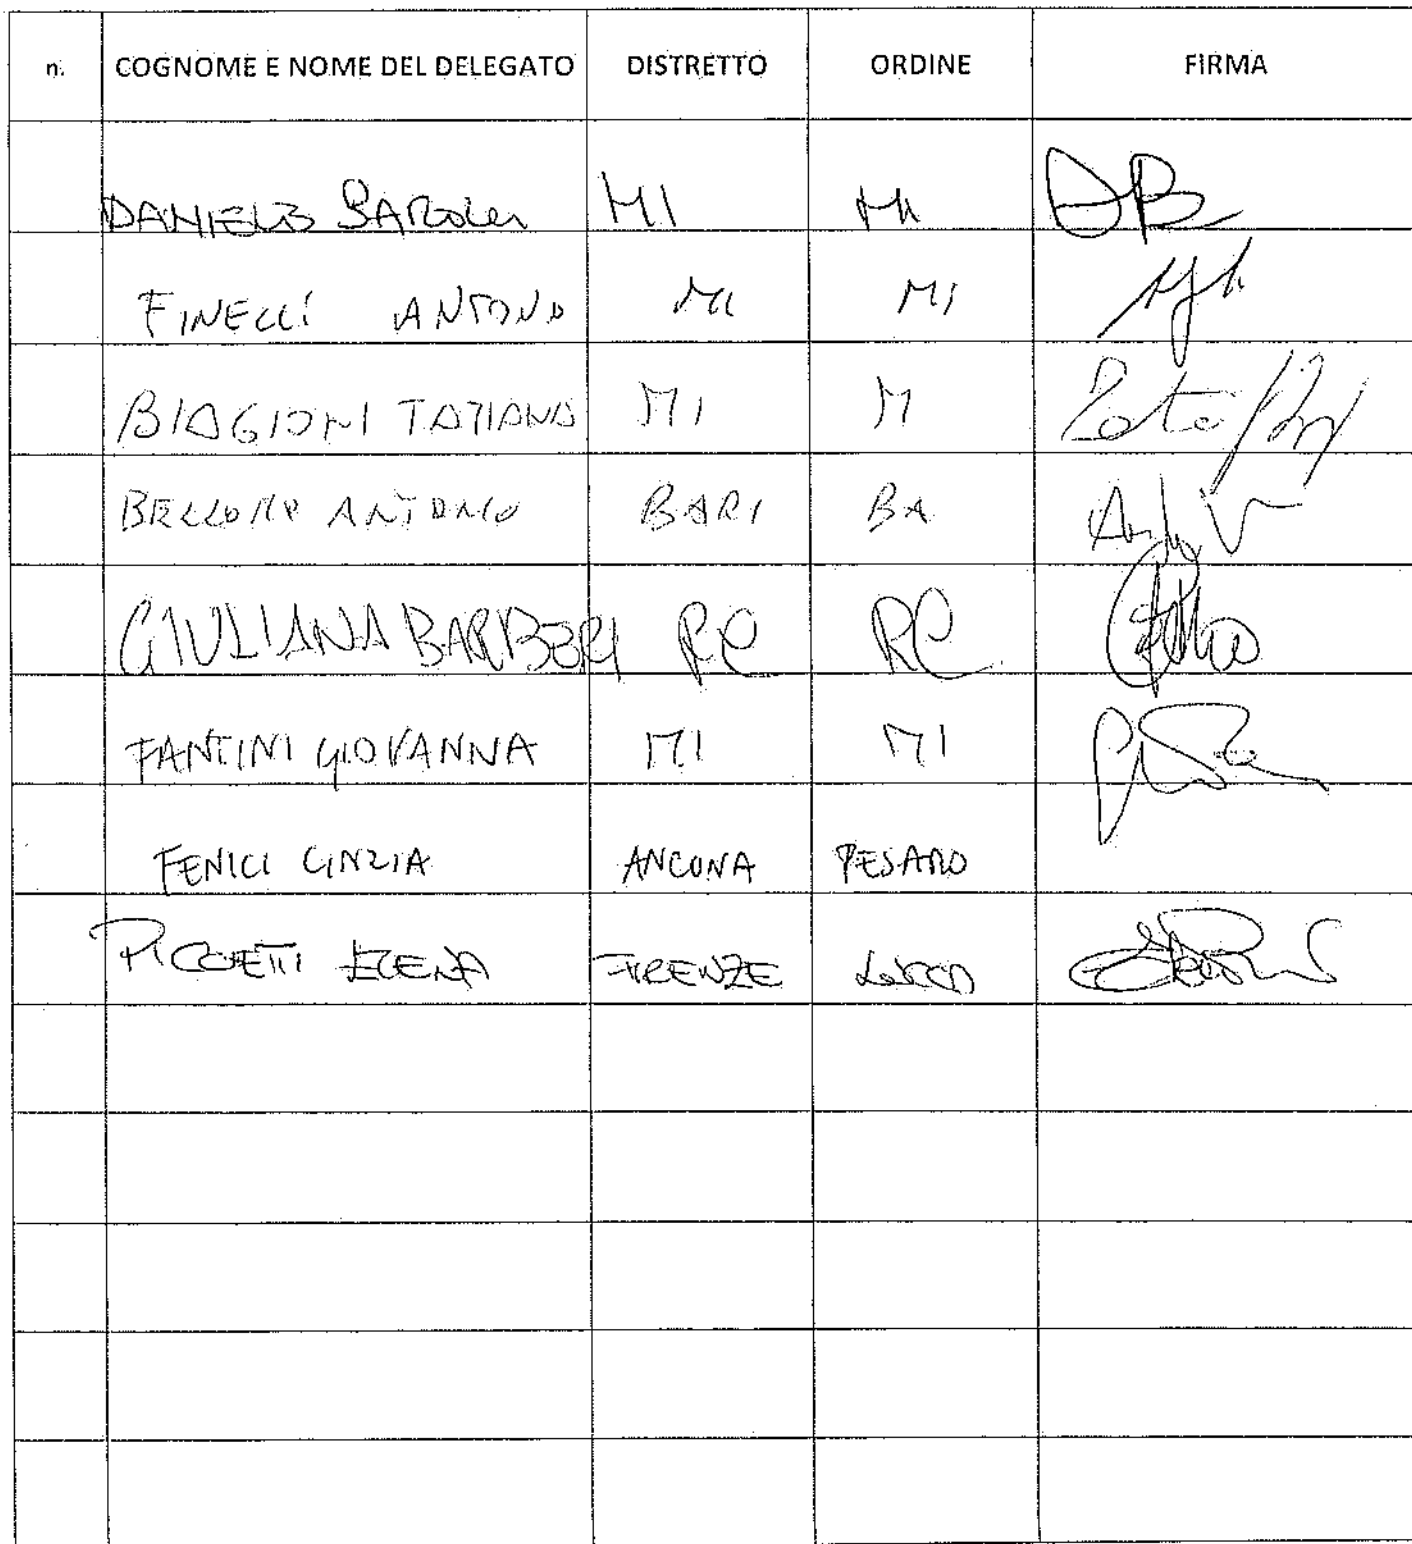 n. COGNOME E NOME DEL DELEGATO DISTRETTO ORDINE FIRMA
DANIELE MI MI
FINELLI ANTONIO MI MI
BIAGIONI TATIANA MI M
ANTONIO BARI BA
GIULIANA BARBERI RC RC
FANTINI GIOVANNA MI MI
FENICI CINZIA ANCONA PESARO
PICCHETTI ELENA FIRENZE LUCCA